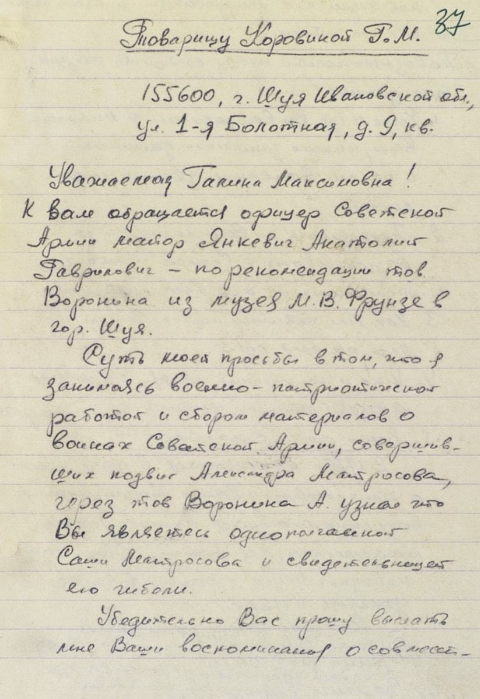 37
Товарищу Коровиной Г.М.
155600, г. Шуя Ивановской обл.,
ул. 1-я Болотная, д. 9, кв.
Уважаемая Галина Максимовна!
К Вам обращается офицер Советской
Армии майор Янкевич Анатолий
Гаврилович – по рекомендации тов.
Воронина из музея М.В. Фрунзе в
гор. Шуя.
Суть моей просьбы в том, что я
занимаясь военно-патриотической
работой и сбором материалов о
воинах Советской Армии, совершив-
ших подвиг Александра Матросова,
через тов Воронина А. узнал что
Вы являетесь однополчанкой
Саши Матросова и свидетельницей
его гибели.
Убедительно Вас прошу выслать
мне Ваши воспоминания о совмест-